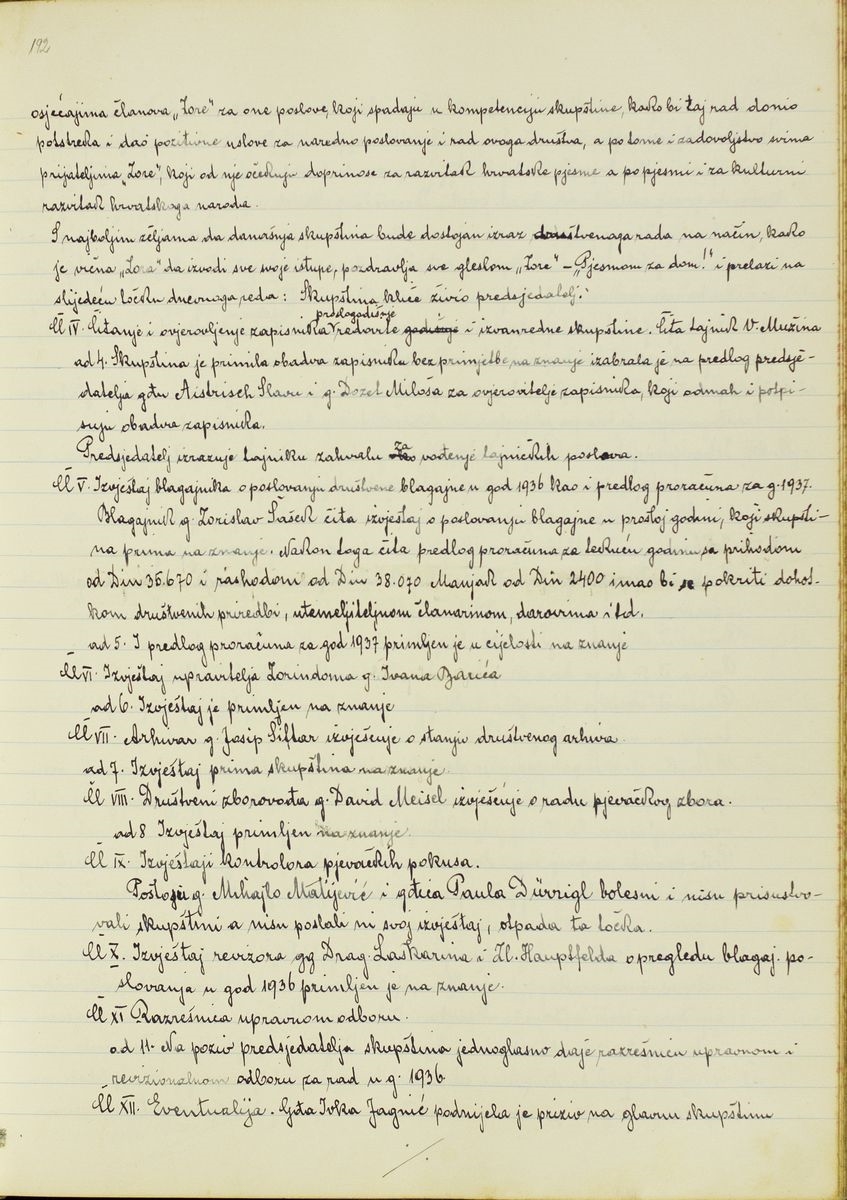 192
osjećajima članova „Zore" za one poslove, koji spadaju u kompetenciju skupštine, kako bi taj rad donio
potstreka i dao pozitivne uslove za naredno poslovanje i rad ovoga društva, a po tome i zadovoljstvo svima
prijateljima „Zore", koji od nje očekuju doprinose za razvitak hrvatske pjesme a po pjesmi i za kulturni
razvitak hrvatskoga naroda.
S najboljim željama da današnja skupština bude dostojan izraz društvenaga rada na način, kako
je vična „Zora" da izvodi sve svoje istupe, pozdravlja sve geslom „Zore" – „Pjesmom za dom!" i prelazi na
slijedeću točku dnevnoga reda: Skupština kliče živio predsjedatelj.
prošlogodišnje
Čl IV. Čitanje i ovjerovljenje zapisnika redovite godišnje i izvanredne skupštine. Čita tajnik V. Mužina
ad 4. Skupština je primila obadva zapisnika bez primjetbe na znanje izabrala je na predlog predsje-
datelja gđu Aistrisch Slavu i g. Dozet Miloša za ovjerovitelje zapisnika, koji odmah i potpi-
suju obadva zapisnika.
Predsjedatelj izrazuje tajniku zahvalu za vođenje tajničkih poslova.
Čl V. Izvještaj blagajnika o poslovanju društvene blagajne u god 1936 kao i predlog proračuna za g. 1937.
Blagajnik g. Zorislav Šašek čita izvještaj o poslovanju blagajne u prošloj godini, koji skupšti-
na prima na znanje. Nakon toga čita predlog proračuna za tekuću godinu sa prihodom
od Din 35.670 i rashodom od Din 38.070 Manjak od Din 2400 imao bi se pokriti dohot-
kom društvenih priredbi, utemeljiteljnom članarinom, darovima i td.
ad 5. I predlog proračuna za god 1937 primljen je u cijelosti na znanje
Čl VI. Izvještaj upravitelja Zorindoma g. Ivana Barića
ad 6. Izvještaj je primljen na znanje
Čl VII. Arhivar g. Josip Šiftar izvješćuje o stanju društvenog arhiva.
ad 7. Izvještaj prima skupština na znanje.
Čl VIII. Društveni zborovođa g. David Meisel izvješćuje o radu pjevačkog zbora.
ad 8 Izvještaj primljen na znanje.
Čl IX. Izvještaji kontrolora pjevačkih pokusa.
Pošto su g. Mihajlo Matijević i gđica Paula Dürrigl bolesni i nisu prisustvo-
vali skupštini a nisu poslali ni svoj izvještaj, otpada ta točka.
Čl X. Izvještaj revizora gg Drag. Laskarina i Zl. Hauptfelda o pregledu blagaj. po-
slovanja u god 1936 primljen je na znanje.
Čl XI Razrešnica upravnom odboru.
ad 11. Na poziv predsjedatelja skupština jednoglasno daje razrešnicu upravnom i
revizionalnom odboru za rad u g. 1936.
Čl XII. Eventualija. Gđa Ivka Jagnić podnijela je priziv na glavnu skupštinu
./.